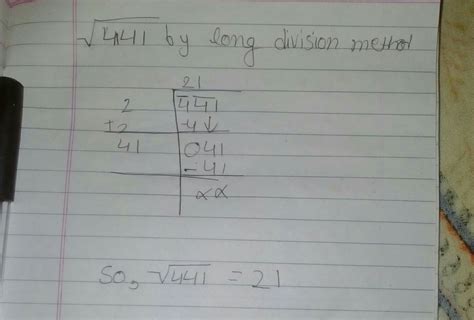 √441 by long division method
21
2 441
+2 -4↓
41 041
-41
xx
So, √441 = 21